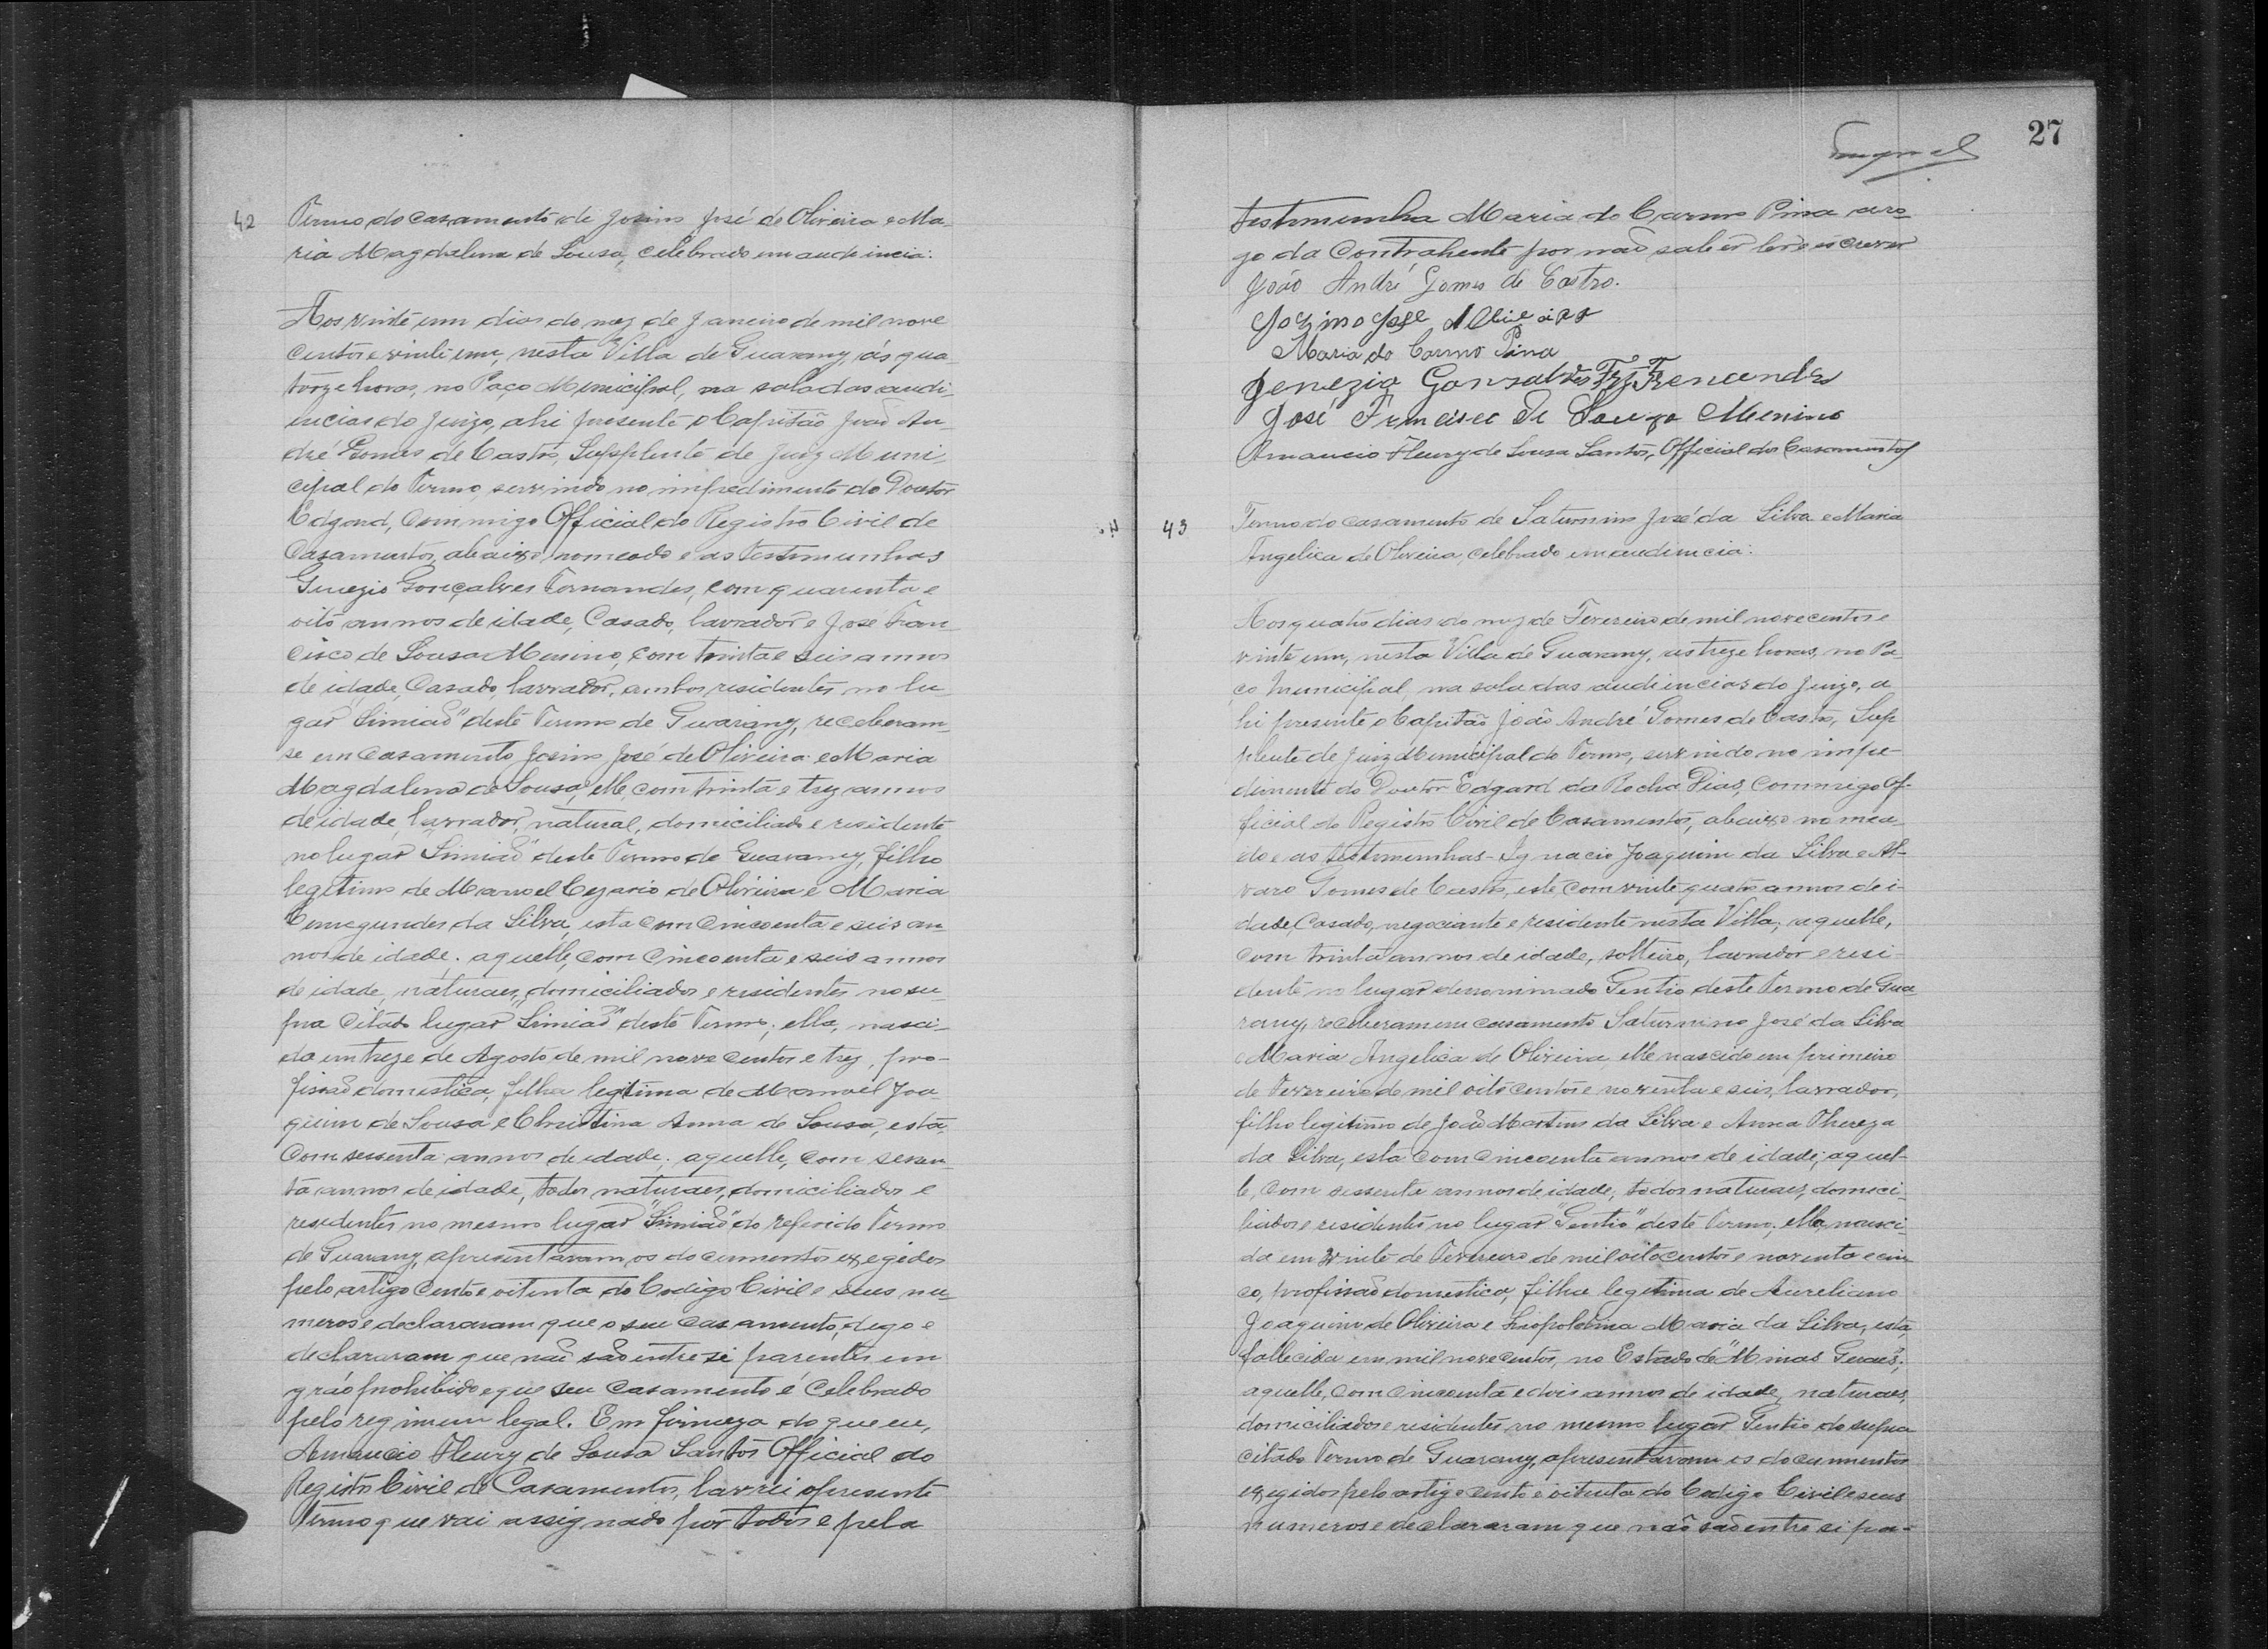 42 Termo do casamento de Josino José de Oliveira e Ma-
ria Magdalena de Sousa, celebrado em audiencia:
Aos vinte um dias do mez de Janeiro de mil nove
centos e vinte um, nesta Villa de Guarany, ás qua-
torze horas, no Paço Municipal, na sala das audi-
encias do Juizo, ahi presente o Capitão João An-
dré Gomes de Castro, Supplente de Juiz Muni-
cipal do Termo, servindo no impedimento do Doutor
Edgard, commigo Official do Registro Civil de
Casamentos, abaixo nomeado e as testemunhas
Genezio Gonçalves Fernandes, com quarenta e
oito annos de idade, Casado, lavrador e José Fran-
cisco de Sousa Menino, com trinta e seis annos
de idade, Casado, lavrador, ambos residentes no lu-
gar "Simião" deste Termo de Guarany, receberam-
se em casamento Josino José de Oliveira e Maria
Magdalena de Sousa, elle, com trinta e trez annos
de idade, lavrador, natural, domiciliado e residente
no lugar "Simião" deste Termo de Guarany, filho
legitimo de Manoel Cezario de Oliveira e Maria
Cunegundes da Silva, esta com cincoenta e seis an-
nos de idade; aquelle, com cincoenta e seis annos
de idade, naturaes, domiciliados e residentes no su-
pra citado lugar "Simião" deste Termo; ella, nasci-
da em treze de Agosto de mil nove centos e trez, pro-
fissão domestica, filha legitima de Manoel Joa-
quim de Sousa e Christina Anna de Sousa, esta,
com sessenta annos de idade; aquelle, com sessen-
ta annos de idade, todos naturaes, domiciliados e
residentes no mesmo lugar "Simião" do referido Termo
de Guarany, apresentaram os documentos exegidos
pelo artigo cento e oitenta do Codigo Civil e seus nu-
meros e declararam que o seu casamento, digo e
declararam que não são entre si parentes em
gráo prohibido e que seu casamento é celebrado
pelo regimem legal. Em firmeza do que eu,
Amancio Fleury de Sousa Santos Official do
Registro Civil de Casamentos, lavrei o presente
Termo que vai assignado por todos e pela
27
testemunha Maria do Carmo Pina aro-
go da Contrahente por não saber ler e escrever
João André Gomes de Castro.
Jozino Jose d Oliveira
Maria do Carmo Pina
Genezio Gonsalves Frz Fernandes
José Francisco de Souza Menino
Amancio Fleury de Sousa Santos, Official dos Casamentos
43 Termo do casamento de Saturnino José da Silva e Maria
Angelica de Oliveira, celebrado em audiencia:
Aos quatro dias do mez de Fevereiro de mil novecentos e
vinte um, nesta Villa de Guarany, as treze horas, no Pa-
ço Municipal na sala das audiencias do Juizo, a
hi presente o Capitão João André Gomes de Castro, Sup
plente de Juiz Municipal do Termo, servindo no impe-
dimento do Doutor Edgard da Rocha Dias, commigo Of-
ficial do Registro Civil de Casamentos, abaixo nomea-
do e as testemunhas - Ignacio Joaquim da Silva e Al-
varo Gomes de Castro, este com vinte quatro annos de i-
dade, Casado, negociante e residente nesta Villa; aquelle,
com trinta annos de idade, solteiro, lavrador e resi-
dente no lugar denominado Gentio deste Termo de Gua
rany, receberam em casamento Saturnino José da Silva
e Maria Angelica de Oliveira elle nascido em primeiro
de Fevereiro de mil oito centos e noventa e seis, lavrador,
filho legitimo de João Martins da Silva e Anna Thereza
da Silva, esta com cincoenta annos de idade; aquel-
le, com sessenta annos de idade, todos naturaes, domici-
liados e residentes no lugar "Gentio" deste Termo; ella, nasci-
da em vinte de Fevereiro de mil oito centos e noventa e cin-
co, profissão domestica, filha legitima de Aureliano
Joaquim de Oliveira e Liopoldina Maria da Silva, esta,
fallecida em mil novecentos, no Estado de "Minas Geraes";
aquelle, com cincoenta e dois annos de idade, naturaes,
domiciliados e residentes no mesmo lugar Gentio do supra
citado Termo de Guarany, apresentaram os documentos
exegidos pelo artigo cento e oitenta do Codigo Civil e seus
numeros e declararam que não são entre si pa-